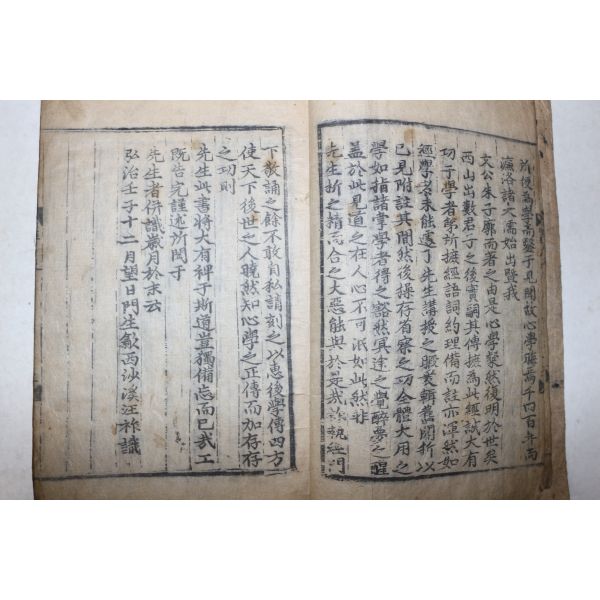 所役為學蒿鑿于見聞故心學晦焉千四百年而
濂洛諸大儒始出暨我
文公朱子廓而著之由是心學粲然後明於世矣
西山出數君子之後實嗣其傳摭為此經誠大有
功于學者第所摭經語詞約理備而註亦渾然如
經學者未能遽了先生講授之暇爰輯舊聞折以
已見附註其間然後操存省察之功全體大用之
學如指諸掌學者得之豁然冥途之覺醉夢之醒
盖於此見道之在人心不可泯如此然非
先生折之精而合之大惡能與於是哉祚執經門
下教誦之餘不敢自私請刻之以惠後學傳四方
使天下後世之人曉然知心學之正傳而加存存
之功則
先生此書將大有裨于斯道豈獨備忘而已哉工
既告完謹述所聞于
先生者併識歲月於末云
弘治壬子十二月望日門生歙西沙溪汪祚識